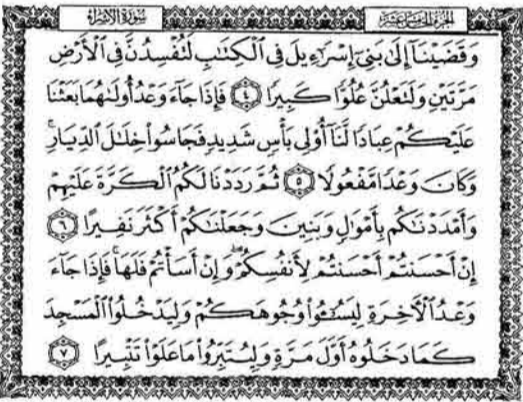 الجزء الخامس عشر
سورة الإسراء
وَقَضَيْنَآ إِلَىٰ بَنِىٓ إِسْرَٰٓءِيلَ فِى ٱلْكِتَٰبِ لَتُفْسِدُنَّ فِى ٱلْأَرْضِ
مَرَّتَيْنِ وَلَتَعْلُنَّ عُلُوًّا كَبِيرًا ٤ فَإِذَا جَآءَ وَعْدُ أُولَىٰهُمَا بَعَثْنَا
عَلَيْكُمْ عِبَادًا لَّنَآ أُو۟لِى بَأْسٍ شَدِيدٍ فَجَاسُوا۟ خِلَٰلَ ٱلدِّيَارِ ۚ
وَكَانَ وَعْدًا مَّفْعُولًا ٥ ثُمَّ رَدَدْنَا لَكُمُ ٱلْكَرَّةَ عَلَيْهِمْ
وَأَمْدَدْنَٰكُم بِأَمْوَٰلٍ وَبَنِينَ وَجَعَلْنَٰكُمْ أَكْثَرَ نَفِيرًا ٦
إِنْ أَحْسَنتُمْ أَحْسَنتُمْ لِأَنفُسِكُمْ ۖ وَإِنْ أَسَأْتُمْ فَلَهَا ۚ فَإِذَا جَآءَ
وَعْدُ ٱلْءَاخِرَةِ لِيَسُۥٓـُٔوا۟ وُجُوهَكُمْ وَلِيَدْخُلُوا۟ ٱلْمَسْجِدَ
كَمَا دَخَلُوهُ أَوَّلَ مَرَّةٍ وَلِيُتَبِّرُوا۟ مَا عَلَوْا۟ تَتْبِيرًا ٧